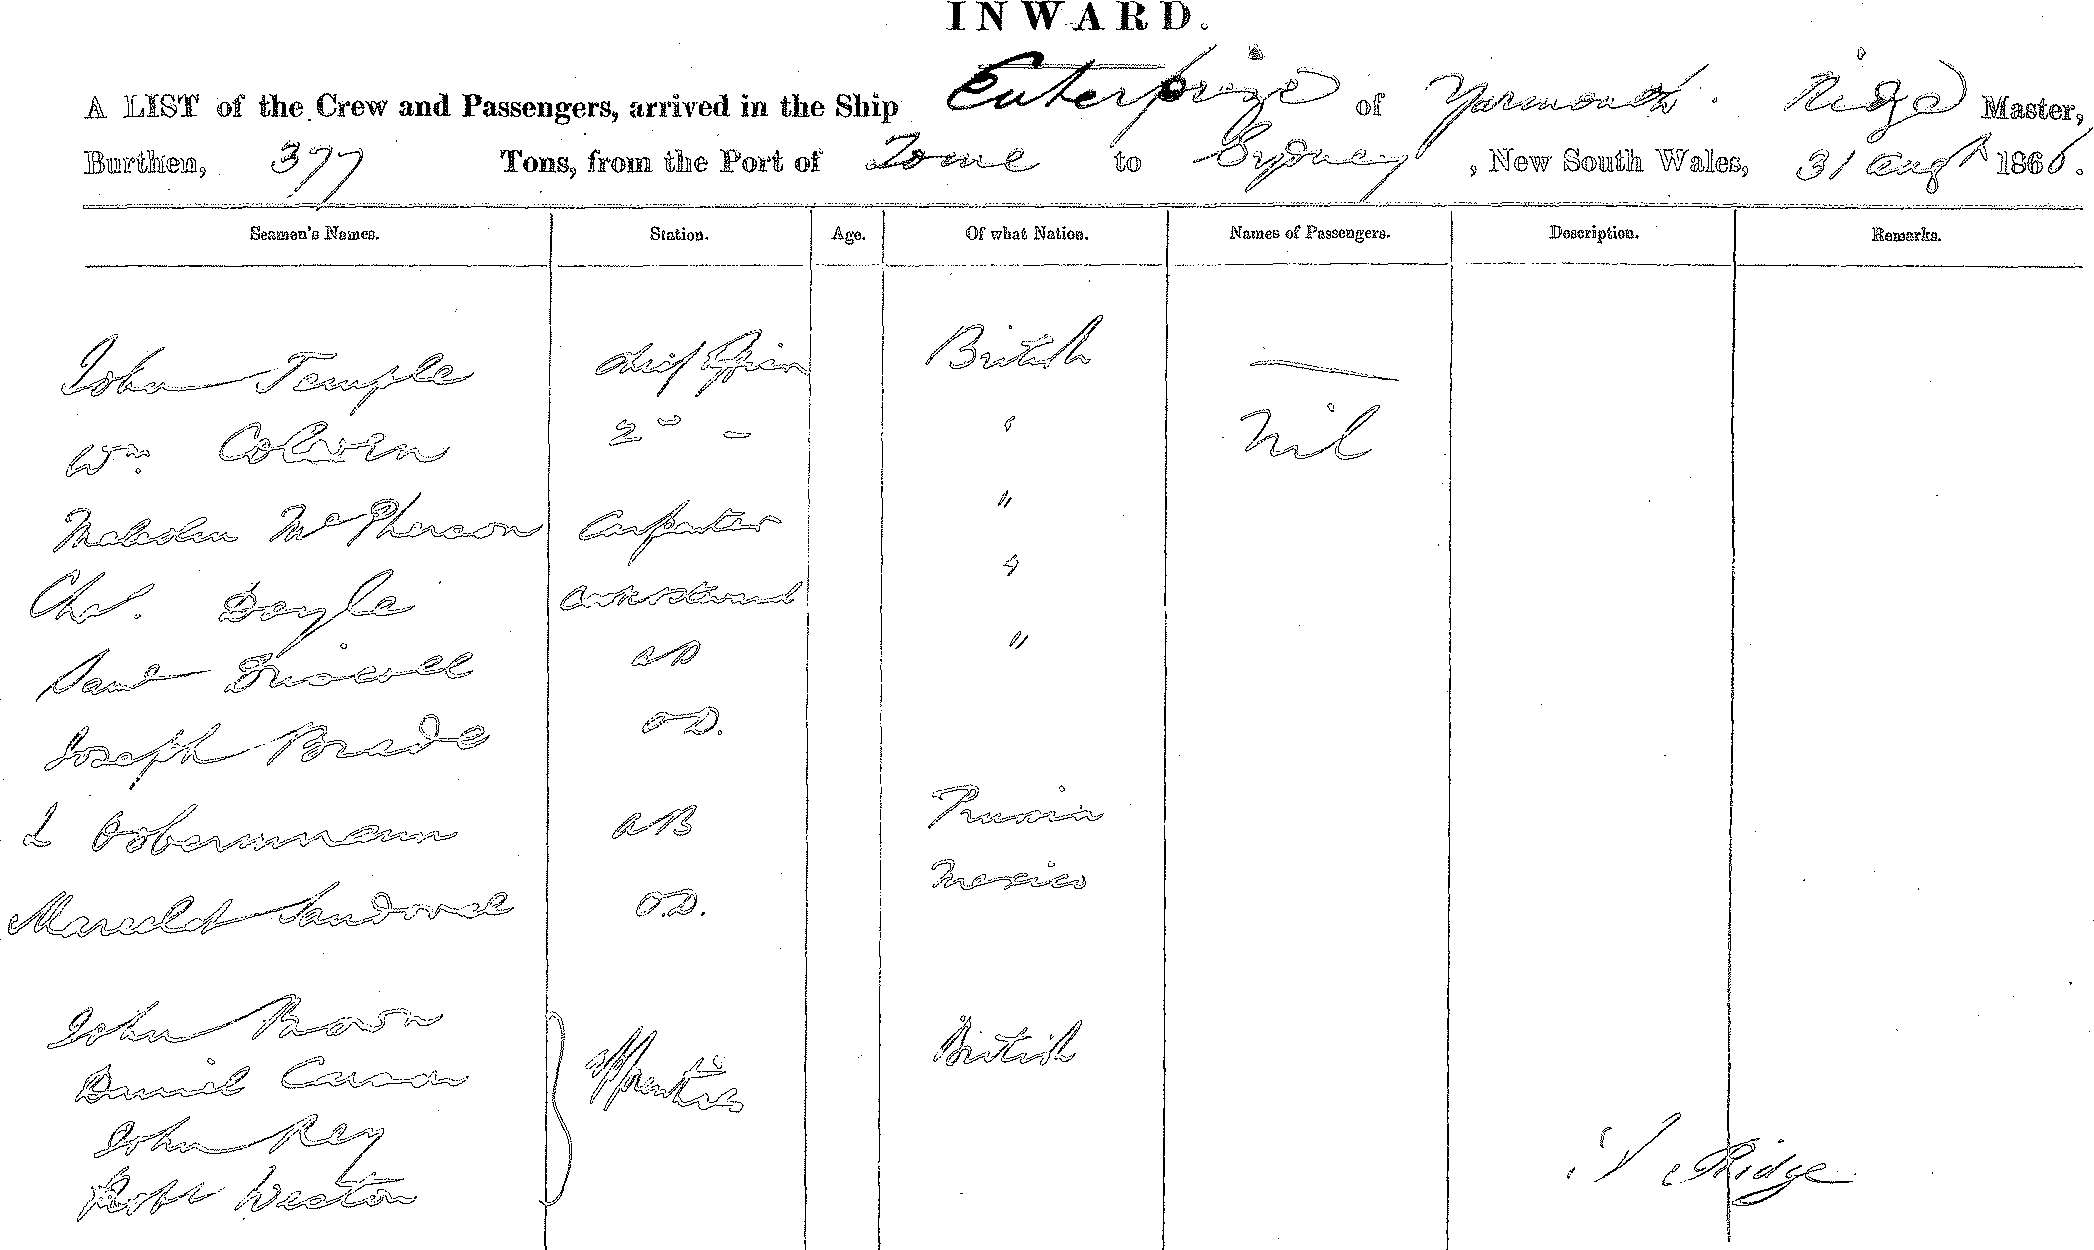 INWARD.
A LIST of the Crew and Passengers, arrived in the Ship Enterprize of Yarmouth. Ridge Master,
Burthen, 377 Tons, from the Port of Tome to Sydney, New South Wales, 31 Augt 1866.
Seamen's Names. Station. Age. Of what Nation. Names of Passengers. Description. Remarks.
John Temple Chief Officer British —
Wm Colwen 2nd - " Nil
Malcolm McPherson Carpenter "
Chs. Doyle Cook & Steward "
Saml Driscoll AB "
Joseph Brade O.D.
L Osbermann AB Prussia
Sandoval O.D. Mexico
John Brown
Daniel Carson Apprentices British
John Rey
Robt Weston
Ridge